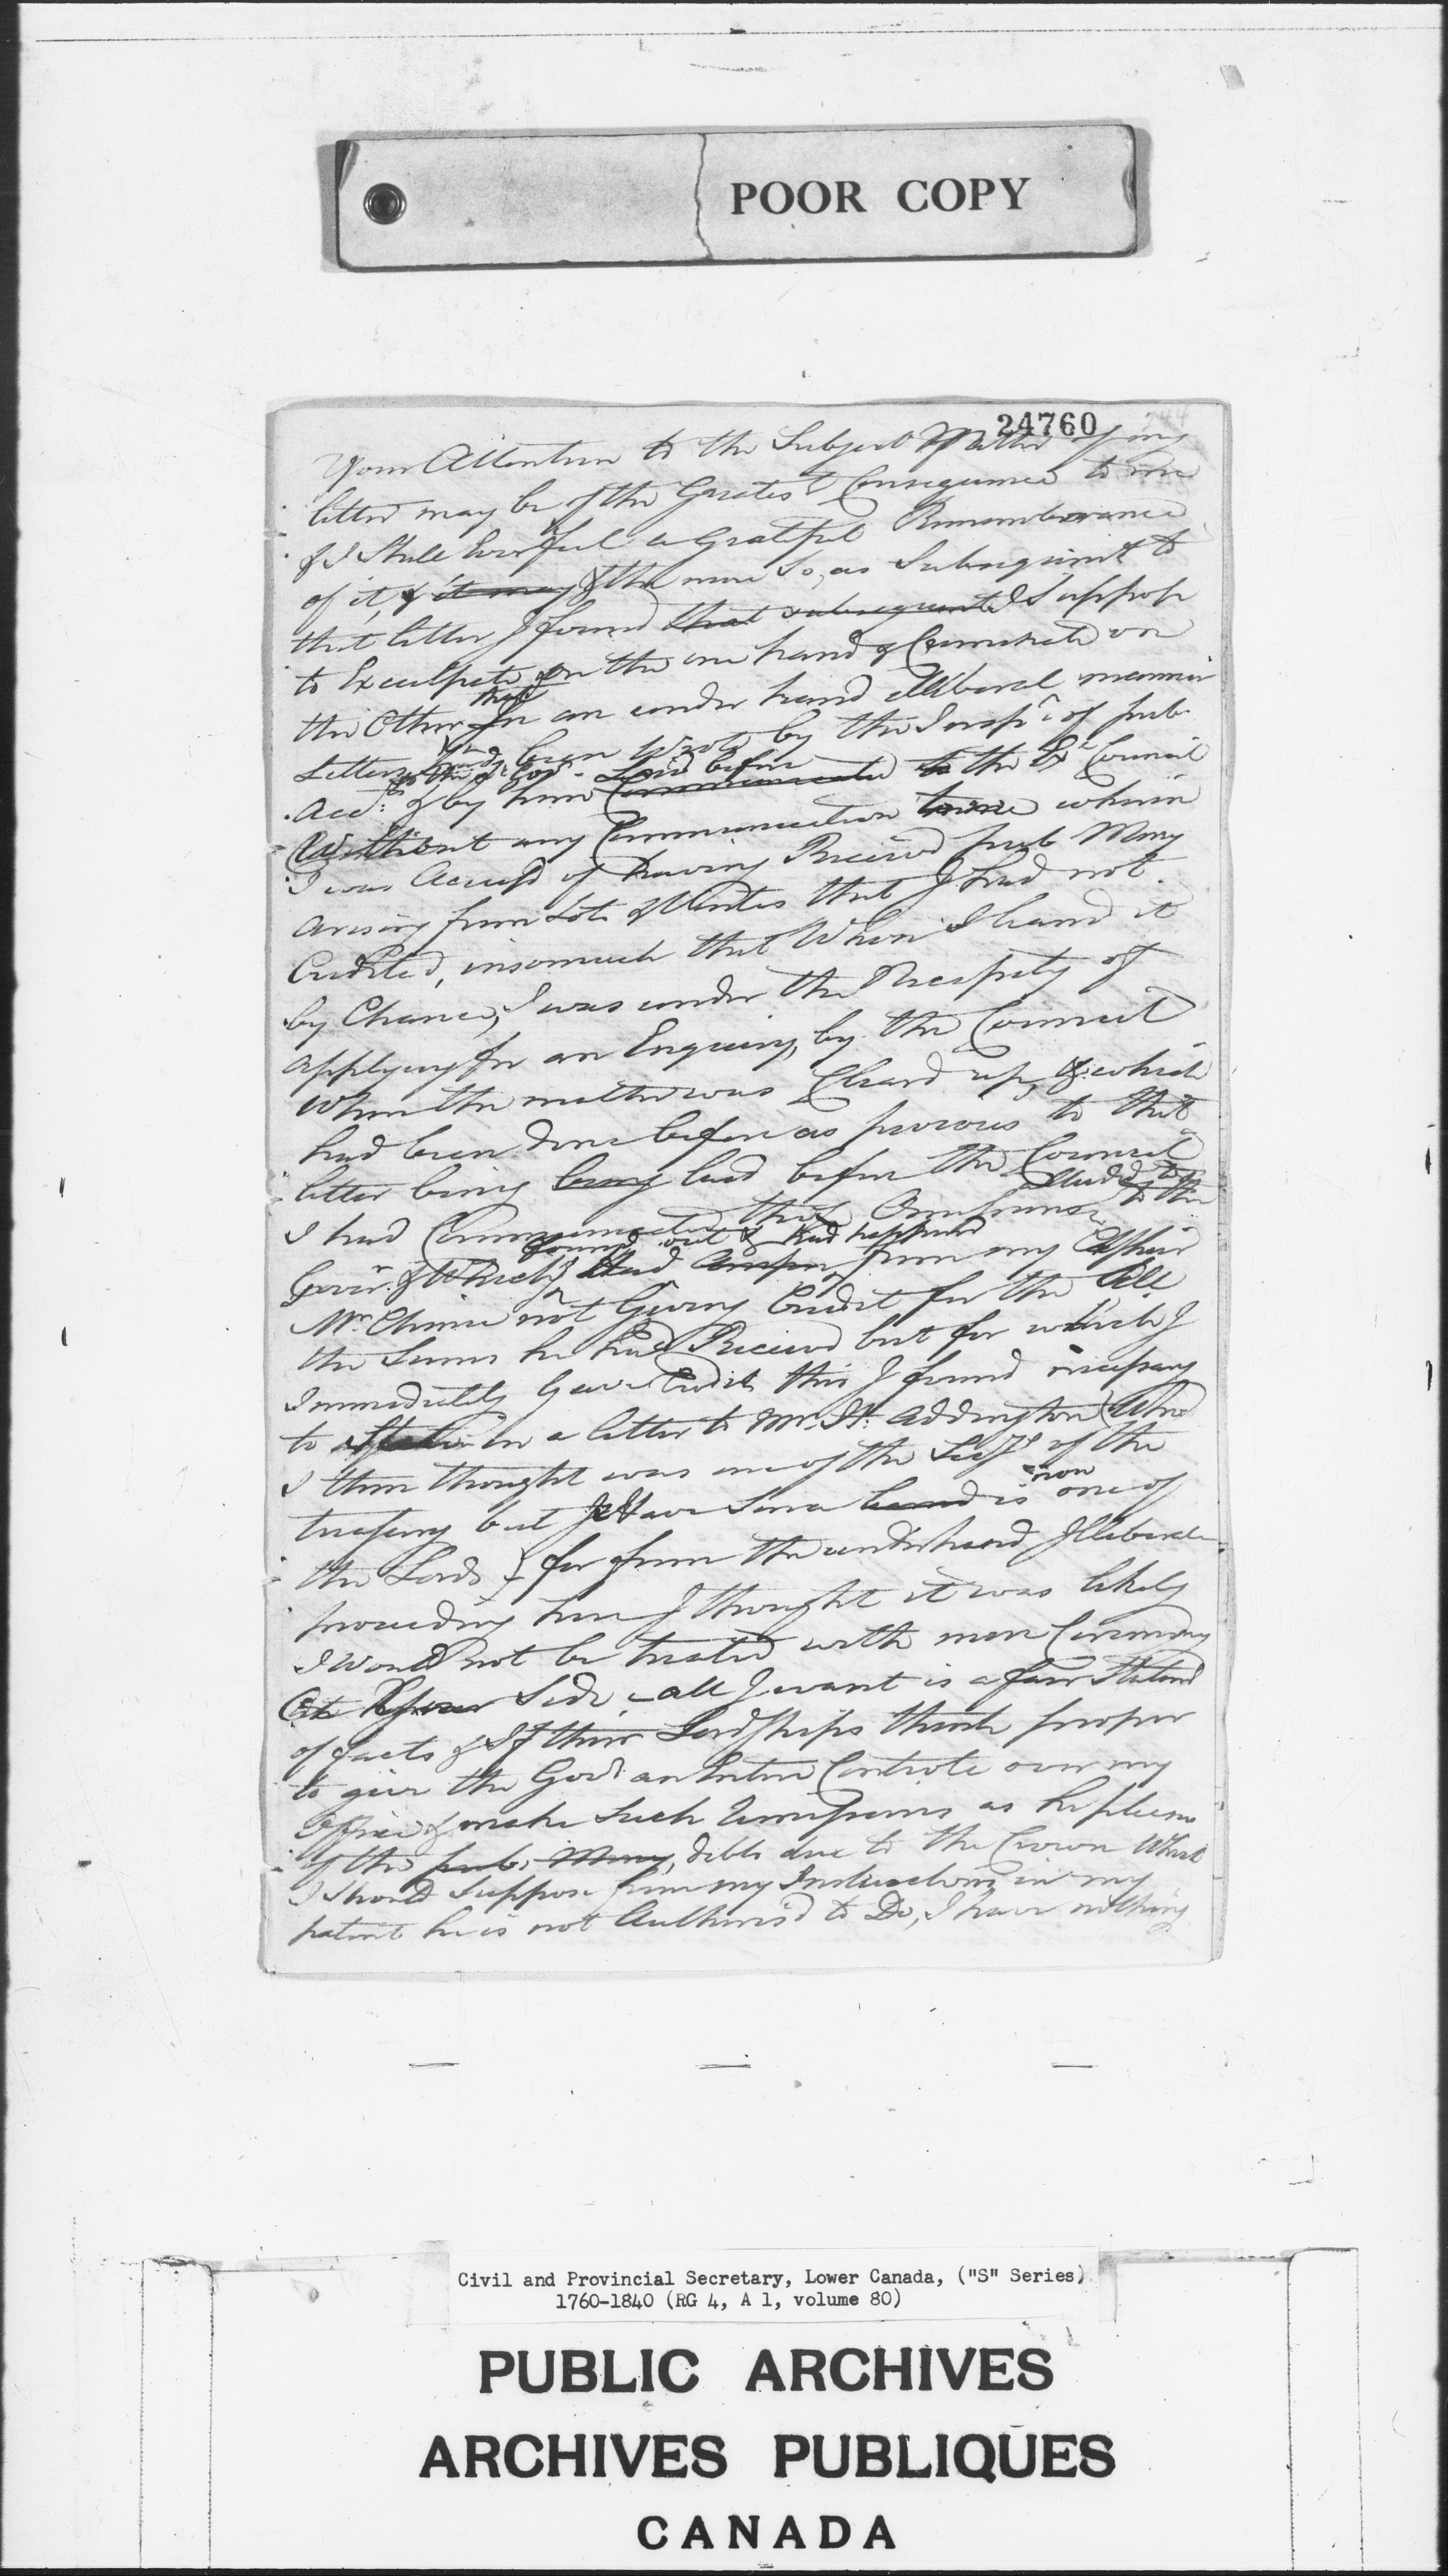 POOR COPY
24760
Your Attention to the Subject Matter of my
letter may be of the Greatest Consequence to me
& I Shall Ever feel a Gratefull Rememberance
of it, & it may & the more So, as Subsequent to
that letter I found that subsequent I Suppose
to Exculpate on the one hand & Criminate on
the Other that in an under hand illiberal manner
Letters had been Wrote by the Insp.r of pub.
to the Gov.r Laid before
Acc.ts & by him Communicated to the Ex.e Council
Without any Communication to me wherein
I was Accused of having Received pub Mony
arising from Lots & Ventes that I had not
Credited, insomuch that When I heard it
by Chance, I was under the Necessity of
applying for an Enquiry, by the Council
when the matter was Cleard up, & which
had been done before as previous to that
letter being being laid before the Council
I had Communicated this Omission alluded to to the
found out & had happend
Gov.r & Which had from my Cashier
Mr. not Giving Credit for the All
the Sums he had Received but for which I
Immediatly Gave Credit this I found necessary
to State in a letter to Mr. H. Addington (Who
I then thought was one of the Secys of the
treasury but I Have Since heard is now one of
the Lords) for from the underhand Illiberal
proceeding here I thought it was likely
I would not be treated with more Ceremony
At Your Side, all I want is a fair Statemt
of facts & If their Lordships think proper
to give the Govr. an Entire Controle over my
Office & make Such Remissions as he pleases
of the pub. Mony, debts due to the Crown What
I Should Suppose from my Instructions in my
patent he is not Authoris'd to Do, I have nothing
Civil and Provincial Secretary, Lower Canada, ("S" Series)
1760-1840 (RG 4, A 1, volume 80)
PUBLIC ARCHIVES
ARCHIVES PUBLIQUES
CANADA